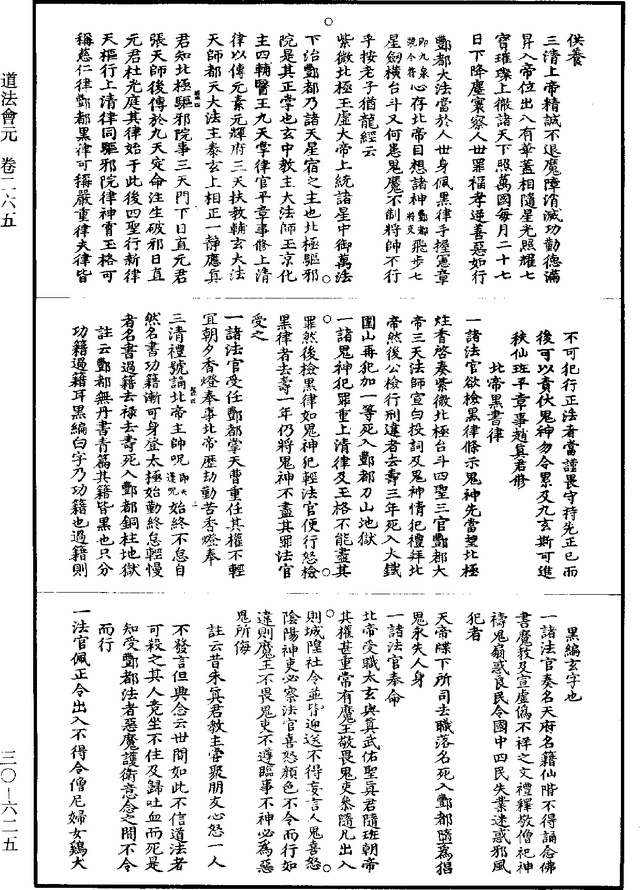 供養
三清上帝精誠不退魔障消滅功勤德滿
昇入帝位出入有華蓋相隨星光照耀七
寶璀璨上徹諸天下照萬國每月二十七
日下降塵寰察人世罪福孝逆善惡如行
酆都大法當於人世身佩黑律手握憲章
即九泉號令符心存北帝目想諸神酆都將吏飛步七
星劒橫台斗又何患鬼魔不制將帥不行
乎按老子猶龍經云
紫微北極玉虛大帝上統諸星中御萬法
下治酆都乃諸天星宿之主也北極驅邪
院是其正掌也玄中教主大法師王京化
主四輔醫王九天掌律官平章事修上清
律以傳元素元輝府三天扶教輔玄大法
天師都天大法主泰玄上相正一靜應真
君知北極驅邪院事三天門下日直元君
張天師後傳於九天定命注生破邪日直
元君杜光庭其律始于此後四聖行新律
天樞行上清律同驅邪院律神霄玉格可
稱慈仁律酆都黑律可稱嚴重律夫律皆
不可犯行正法者當謹畏守持先正己而
後可以責伏鬼神勿令累及九玄斯可進
秩仙班平章事趙真君修
北帝黑書律
一諸法官欲檢黑律條示鬼神先當望北極
炷香啓奏紫微北極台斗四聖三官酆都大
帝三天法師宣白投詞及鬼神情犯禮拜北
帝然後公檢行刑違者去壽三年死入大鐵
圍山再犯加一等死入酆都刀山地獄
一諸鬼神犯罪重上清律及玉格不能盡其
罪然後檢黑律如鬼神犯輕法官便行怒檢
黑律者去壽一年仍將鬼神不盡其罪法官
受之
一諸法官受任酆都掌天曹重任其權不輕
宜朝夕香燈奉事北帝歷劫勤苦香燈奉
三清禮號誦北帝主帥呪即天蓬呪始終不怠自
然名書功籍漸可身登太極始勤終怠輕慢
者名書過籍去祿去壽死入酆都銅柱地獄
註云酆都無丹書青篇其籍皆黑也只分
功籍過籍耳黑編白字乃功籍也過籍則
黑編玄字也
一諸法官奏名天府名籍仙階不得誦念佛
書魔教及宣虛偽不祥之文禮釋敬僧祀神
禱鬼扇惑良民令國中四民失業迷惑邪風
犯者
天帝牒下所司去職落名死入酆都隨為猖
鬼永失人身
一諸法官奉命
北帝受職太玄與真武佑聖真君隨班朝帝
其權甚重常有魔王敬畏鬼吏參隨凡出入
則城隍社令並皆迎送不得妄言人鬼喜怒
陰陽神吏必察法官喜怒顏色不令而行如
違則魔王不畏鬼吏不遵臨事不神必為惡
鬼所侮
註云昔朱真君教主嘗聚朋友心怒一人
不發言但興念云世間如此不信道法者
可殺之其人竟坐不住及歸吐血而死是
知受酆都法者惡魔護衛意念之間不令
而行
一法官佩正令出入不得令僧尼婦女鷄犬
道法會元 卷二六五
三〇—六二五